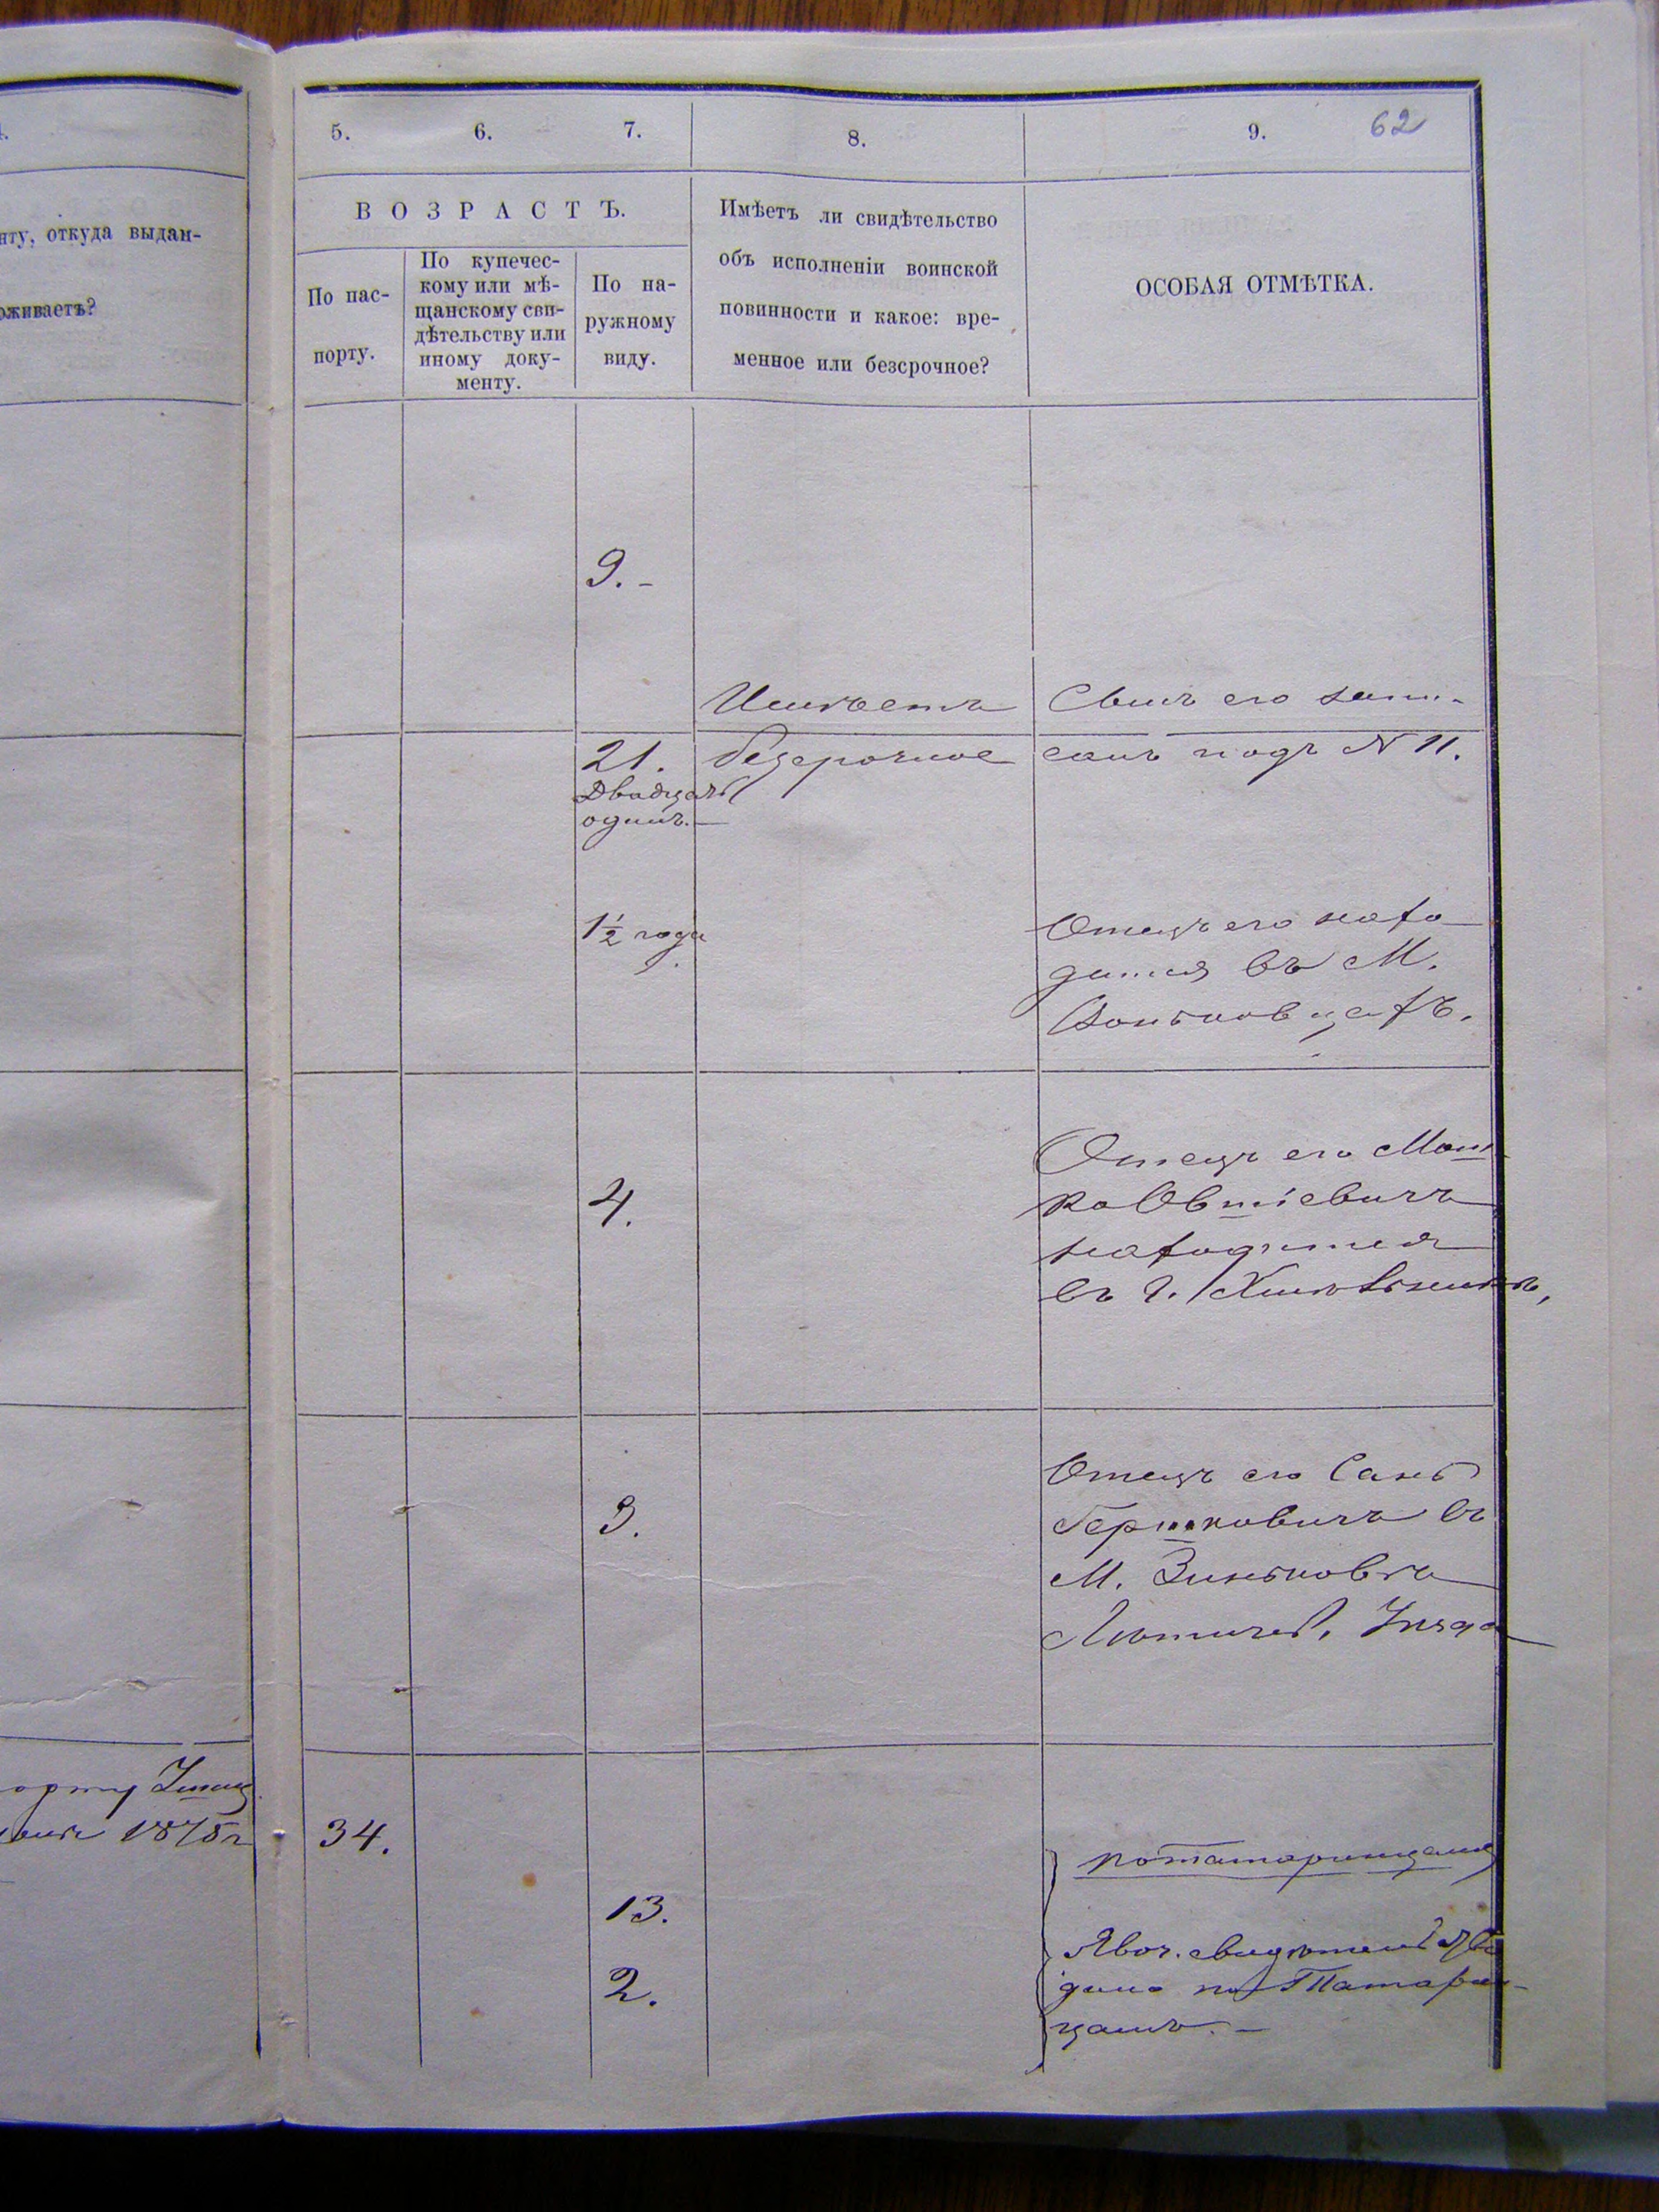 5. 6. 7. 8. 9. 62
ВОЗРАСТЪ.
нту, откуда выдан-
оживаетъ?
По пас-
порту.
По купечес-
кому или мѣ-
щанскому сви-
дѣтельству или
иному доку-
менту.
По на-
ружному
виду.
Имѣетъ ли свидѣтельство
объ исполненіи воинской
повинности и какое: вре-
менное или безсрочное?
ОСОБАЯ ОТМѢТКА.
9.-
Имѣетъ
безсрочное
Сынъ его запи-
санъ подъ N 11.
21.
Двадцать
одинъ.-
1½ года
Отецъ его нахо
дится въ М.
4.
Отецъ его Мош
ко Овшіевичъ
находится
въ г.
3.
Отецъ его
Гершковичъ въ
М. Зиньковѣ
Летичев. Уѣзда
1875 г
34.
13.
2.
по Татаринцамъ
Явоч. свидѣтел
дано по Татарин-
цамъ.-